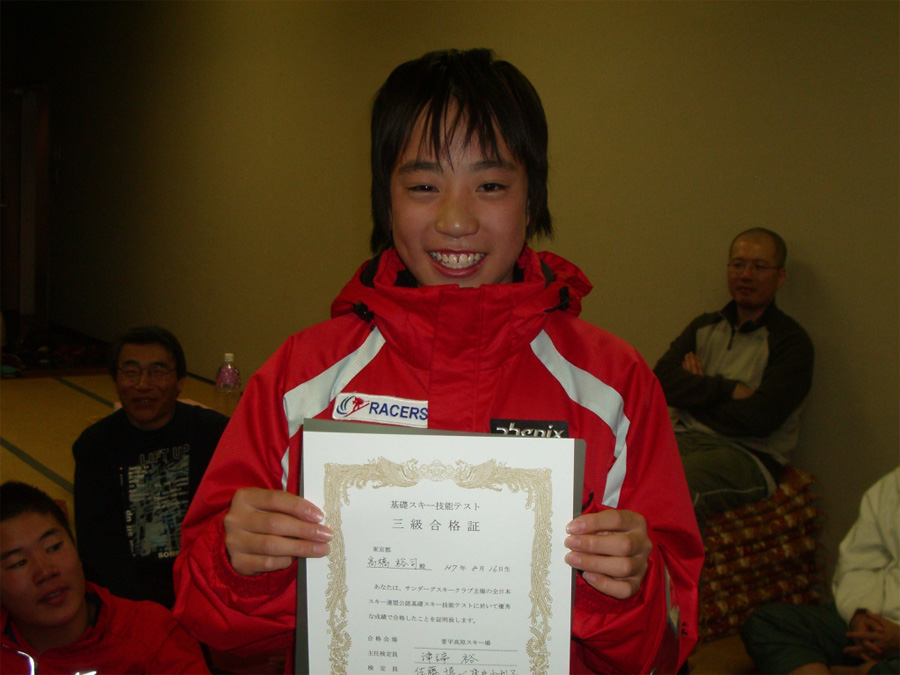 RACERS
phenix
基礎スキー技能テスト
三級合格証
東京都
高橋裕司殿 H7年 8月16日生
あなたは、サンダーグスキークラブ主催の全日本
スキー連盟公認基礎スキー技能テストに於いて優秀
な成績で合格したことを証明致します。
合格会場 菅平高原スキー場
主任検定員 裕
検定員 佐藤慎一
LIFT UP